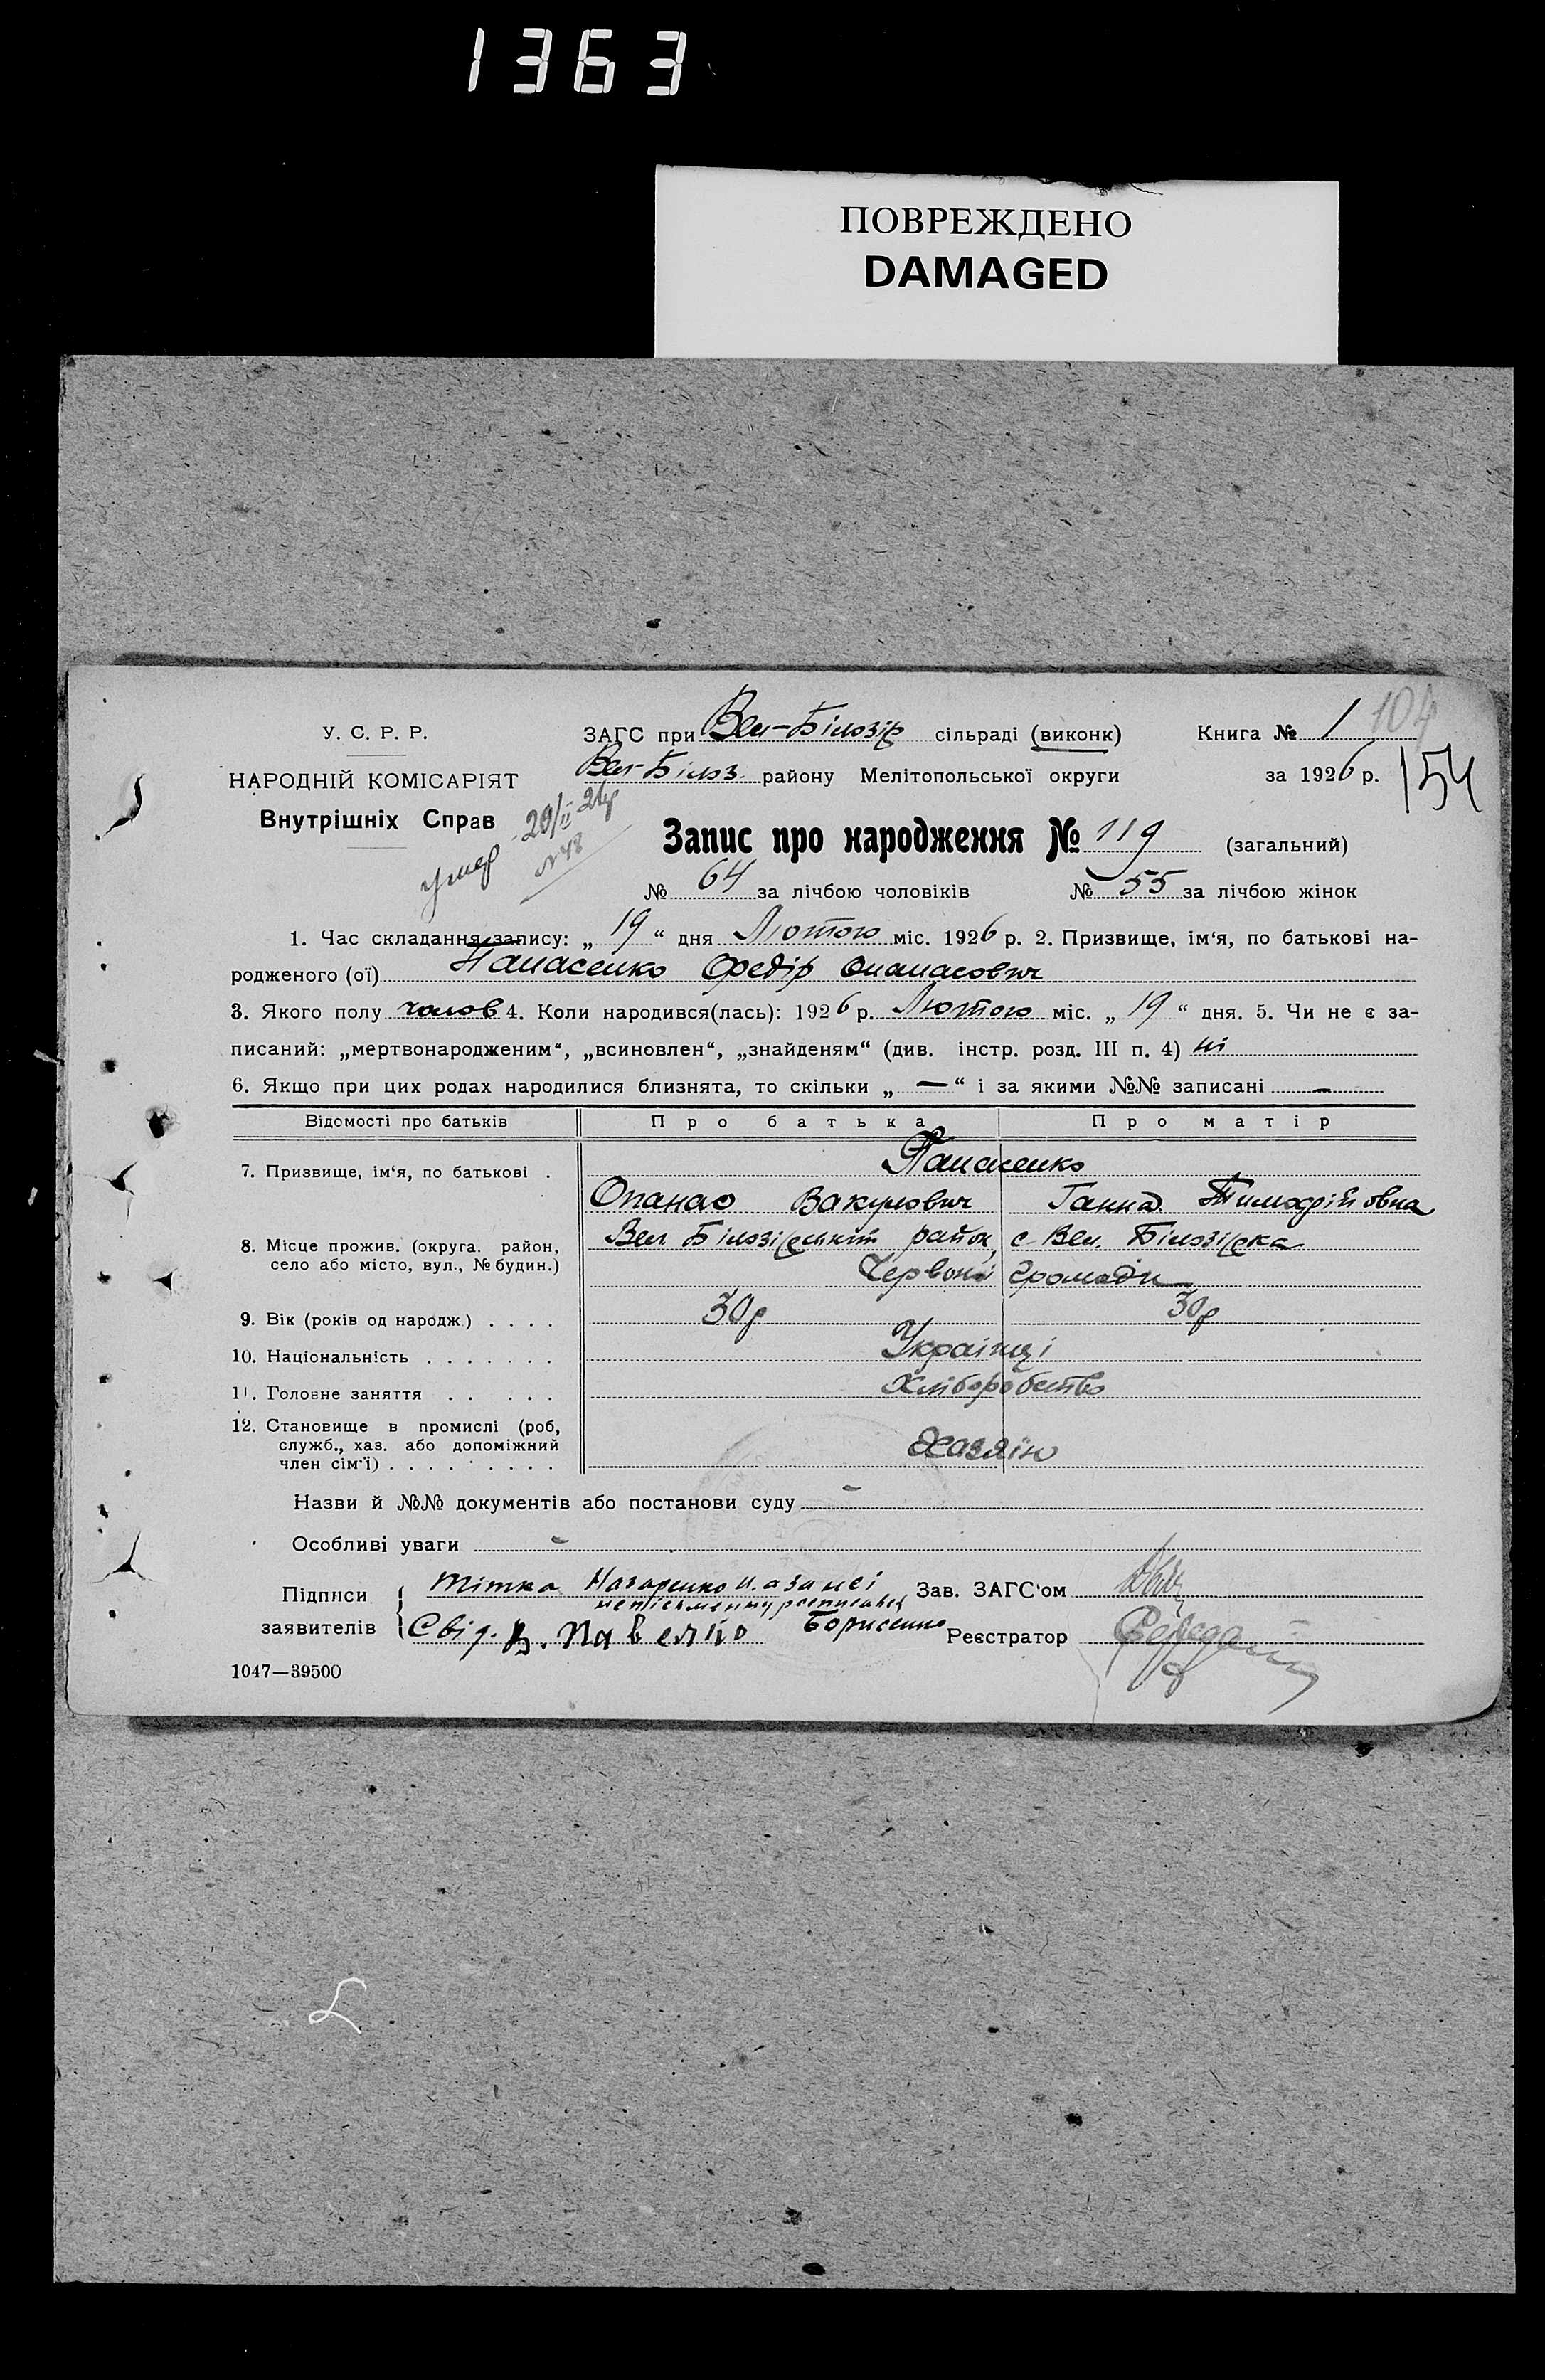 1363
ПОВРЕЖДЕНО
DAMAGED
У. С. Р. Р.
НАРОДНІЙ КОМІСАРІЯТ
Внутрішніх Справ
умер 20/II 26р
№48
ЗАГС при Вел-Білозір сільраді (виконк)
Вел-Білоз. району Мелітопольської округи
Книга № 1
104
за 1926 р.
154
Запис про народження № 119 (загальний)
№ 64 за лічбою чоловіків № 55 за лічбою жінок
1. Час складання запису: „ 19 “ дня Лютого міс. 1926 р. 2. Призвище, ім‘я, по батькові на-
родженого (ої) Панасенко Федір Опанасович
3. Якого полу чолов 4. Коли народився(лась): 1926 р. Лютого міс. „ 19 “ дня. 5. Чи не є за-
писаний: „мертвонародженим“, „всиновлен“, „знайденям“ (див. інстр. розд. III п. 4) ні
6. Якщо при цих родах народилися близнята, то скільки „ — “ і за якими №№ записані —
Відомості про батьків Про батька Про матір
7. Призвище, ім‘я, по батькові . Панасенко
Опанас Вакулович Ганна Тимофійовна
8. Місце прожив. (округа. район, село або місто, вул., № будин.)
Вел Білозірський район, с Вел. Білозірка
Червоної громади
9. Вік (років од народж.) . . . . 30р 30р
10. Національність . . . . . . . Українці
11. Головне заняття . . . . . Хліборобство
12. Становище в промислі (роб,
служб., хаз. або допоміжний
член сім‘ї) . . . . . . . . . Хазяїн
Назви й №№ документів або постанови суду -
Особливі уваги -
Підписи заявителів
тітка Назаренко а за неї
неписьменну росписався
Борисенко
Свід. В. Павелко
Зав. ЗАГС‘ом
Реєстратор
1047—39500